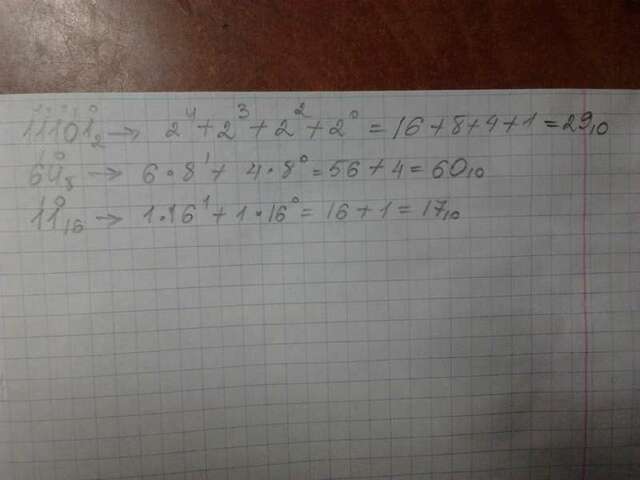 11101₂ → 2⁴ + 2³ + 2² + 2⁰ = 16 + 8 + 4 + 1 = 29₁₀
64₈ → 6 · 8¹ + 4 · 8⁰ = 56 + 4 = 60₁₀
11₁₆ → 1 · 16¹ + 1 · 16⁰ = 16 + 1 = 17₁₀